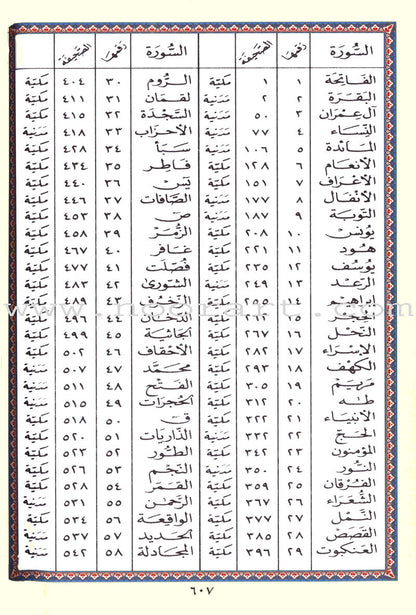 السُّورَة رقمها الصَّحيفة السُّورَة رقمها الصَّحيفة
الفَاتِحَة ١ ١ مكيّة الرُّوم ٣٠ ٤٠٤ مكيّة
البَقَرَة ٢ ٢ مدنية لقمَان ٣١ ٤١١ مكيّة
آل عِمْرَان ٣ ٥٠ مدنية السَّجْدَة ٣٢ ٤١٥ مكيّة
النِّسَاء ٤ ٧٧ مدنية الأحزَاب ٣٣ ٤١٨ مدنية
المَائدة ٥ ١٠٦ مدنية سَبَأ ٣٤ ٤٢٨ مكيّة
الأنعَام ٦ ١٢٨ مكيّة فَاطِر ٣٥ ٤٣٤ مكيّة
الأعرَاف ٧ ١٥١ مكيّة يسٓ ٣٦ ٤٤٠ مكيّة
الأنفَال ٨ ١٧٧ مدنية الصَّافات ٣٧ ٤٤٦ مكيّة
التوبَة ٩ ١٨٧ مدنية صٓ ٣٨ ٤٥٣ مكيّة
يُونس ١٠ ٢٠٨ مكيّة الزُّمَر ٣٩ ٤٥٨ مكيّة
هُود ١١ ٢٢١ مكيّة غَافر ٤٠ ٤٦٧ مكيّة
يُوسُف ١٢ ٢٣٥ مكيّة فُصِّلَت ٤١ ٤٧٧ مكيّة
الرّعد ١٣ ٢٤٩ مدنية الشّورىٰ ٤٢ ٤٨٣ مكيّة
إبراهيم ١٤ مكيّة الزّخرُف ٤٣ ٤٨٩ مكيّة
الحِجر ١٥ ٢٦٢ مكيّة الدّخَان ٤٤ ٤٩٦ مكيّة
النّحل ١٦ ٢٦٧ مكيّة الجَاثية ٤٥ ٤٩٩ مكيّة
الإسرَاء ١٧ ٢٨٢ مكيّة الأحقاف ٤٦ ٥٠٢ مكيّة
الكهف ١٨ ٢٩٣ مكيّة محَمَّد ٤٧ ٥٠٧ مدنية
مَريَم ١٩ ٣٠٥ مكيّة الفَتْح ٤٨ ٥١١ مدنية
طٰه ٢٠ ٣١٢ مكيّة الحُجرَات ٤٩ ٥١٥ مدنية
الأنبيَاء ٢١ ٣٢٢ مكيّة قٓ ٥٠ ٥١٨ مكيّة
الحَجّ ٢٢ ٣٣٢ مدنية الذّاريَات ٥١ ٥٢٠ مكيّة
المؤمنون ٢٣ ٣٤٢ مكيّة الطّور ٥٢ ٥٢٣ مكيّة
النّور ٢٤ ٣٥٠ مدنية النّجْم ٥٣ ٥٢٦ مكيّة
الفُرقان ٢٥ ٣٥٩ مكيّة القَمَر ٥٤ ٥٢٨ مكيّة
الشُّعَرَاء ٢٦ ٣٦٧ مكيّة الرَّحمٰن ٥٥ ٥٣١ مدنية
النَّمْل ٢٧ ٣٧٧ مكيّة الوَاقِعَة ٥٦ ٥٣٤ مكيّة
القَصَص ٢٨ ٣٨٥ مكيّة الحَديد ٥٧ ٥٣٧ مدنية
العَنكبوت ٢٩ ٣٩٦ مكيّة المجَادلة ٥٨ ٥٤٢ مدنية
٦٠٧